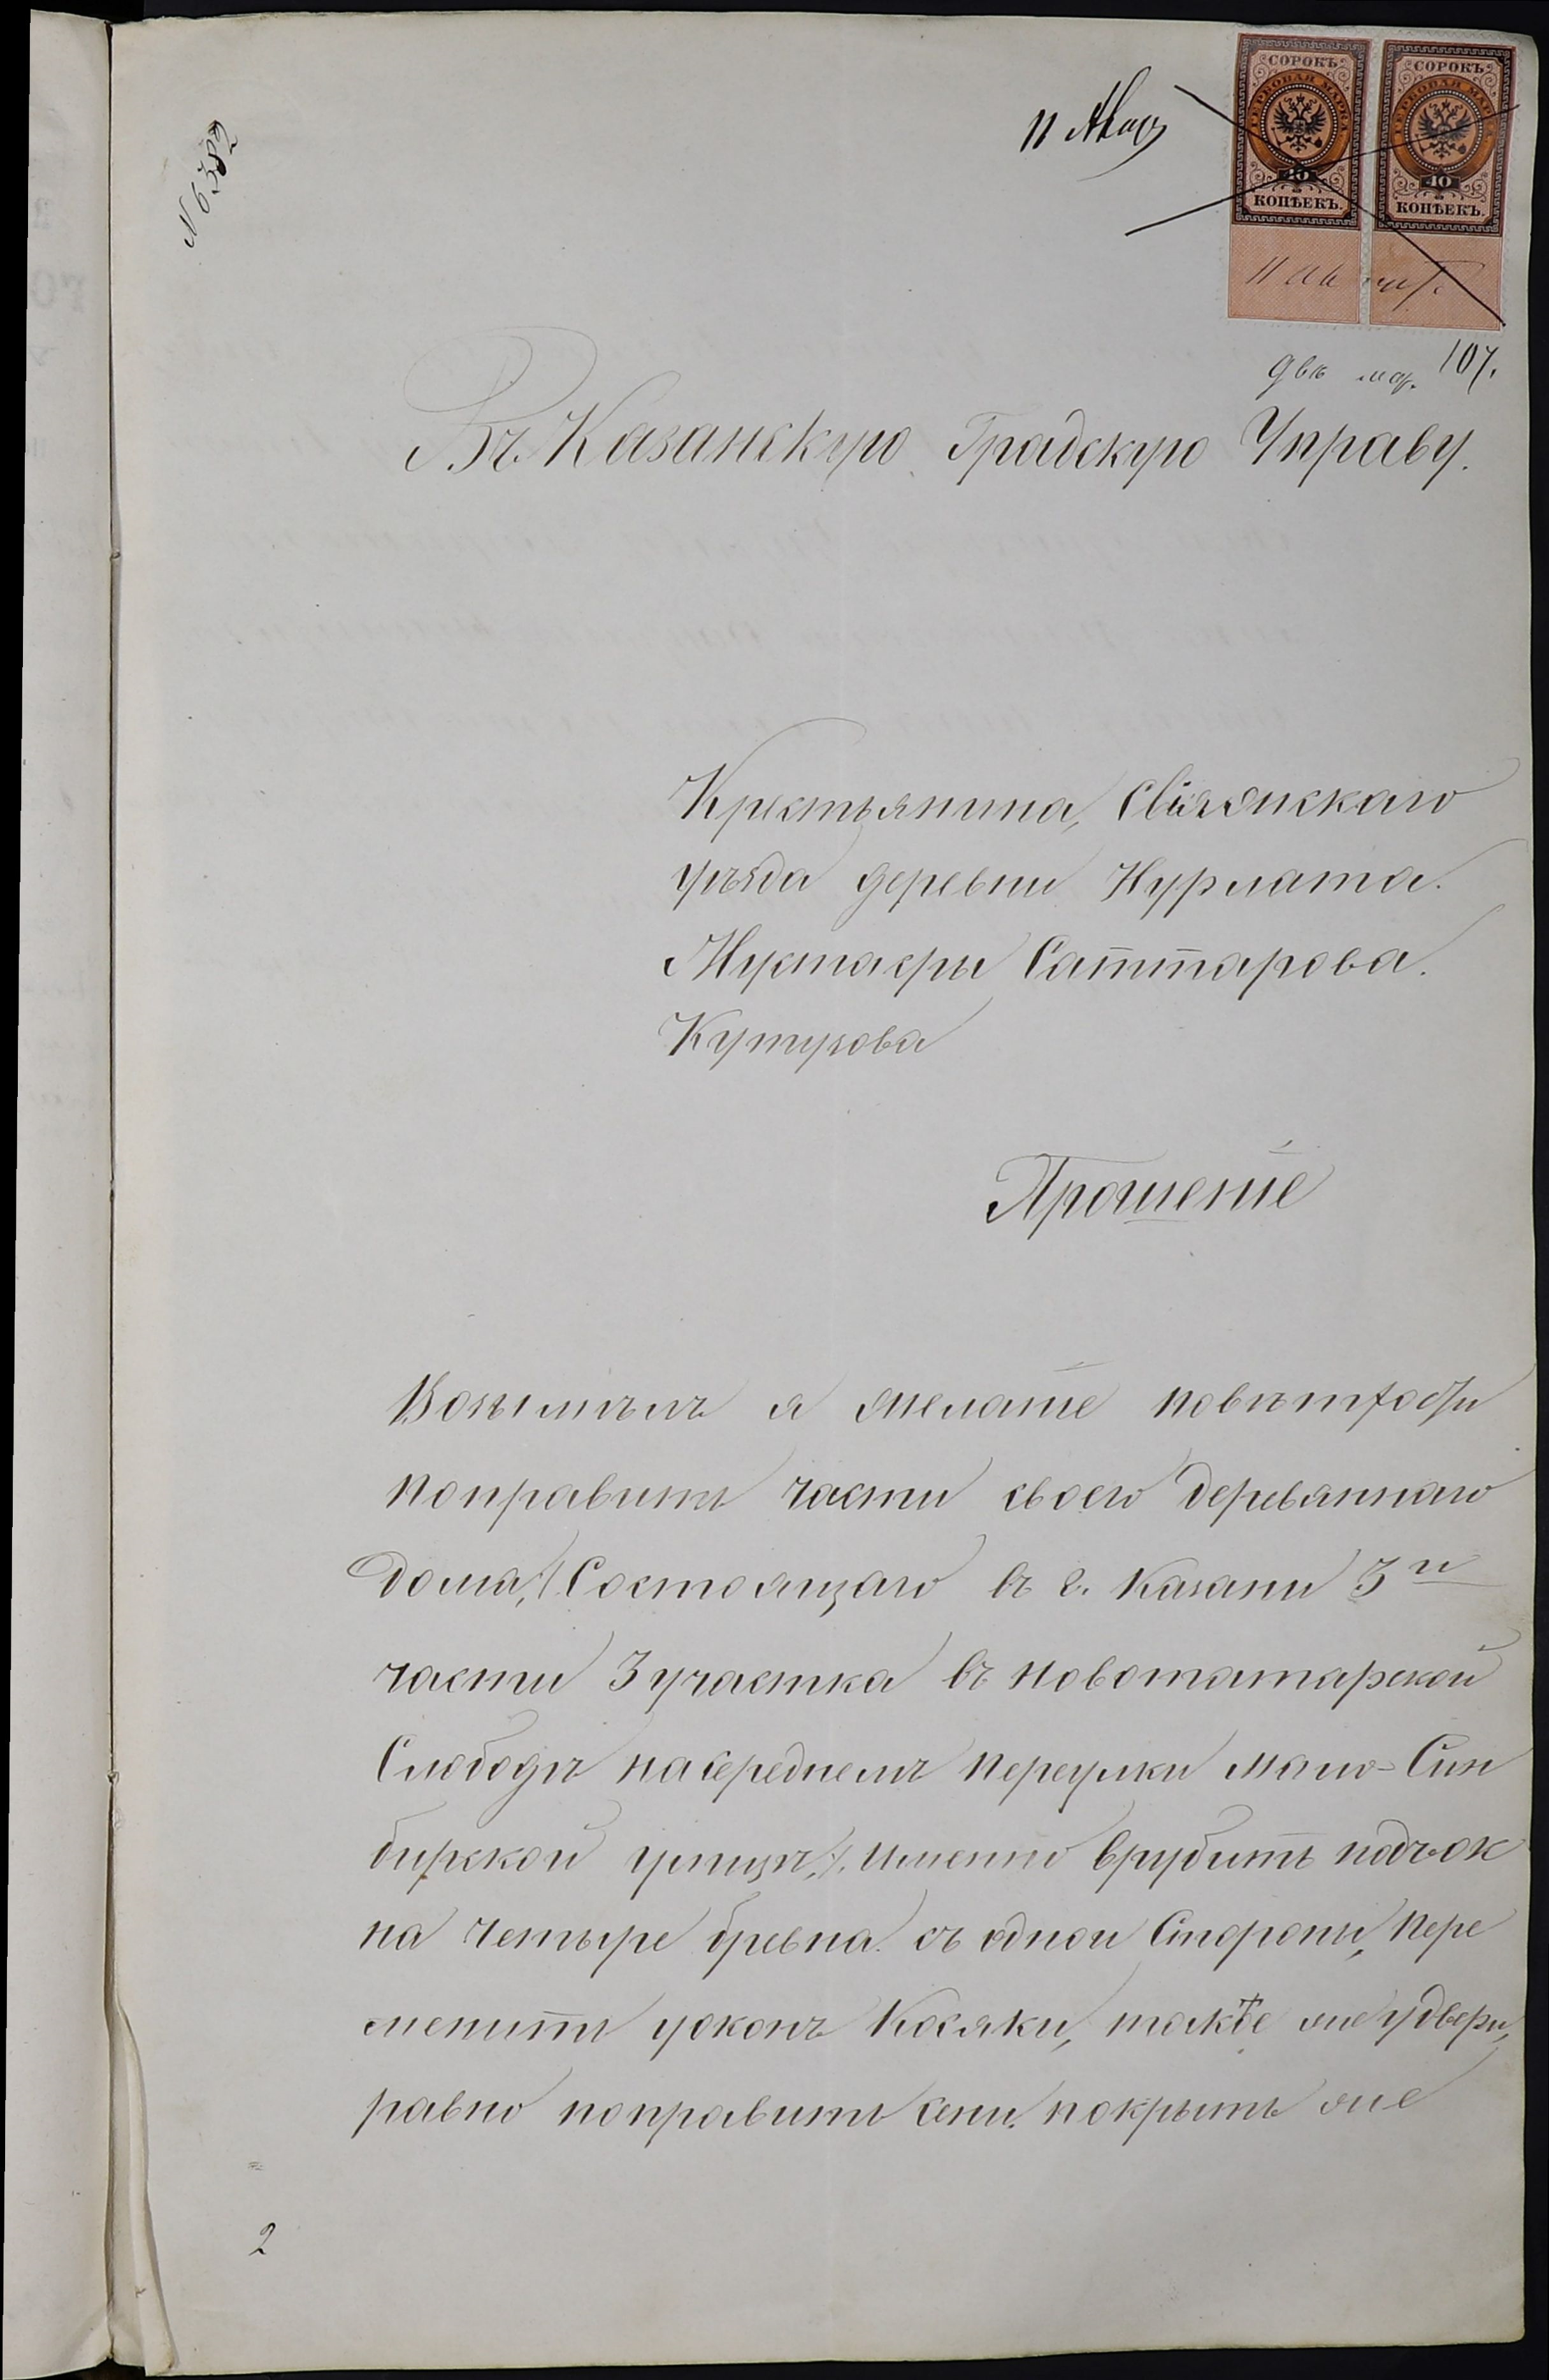 N 6382
11 Мая
СОРОКЪ
ГЕРБОВАЯ МАРКА
40
КОПѢЕКЪ.
СОРОКЪ
ГЕРБОВАЯ МАРКА
40
КОПѢЕКЪ.
двѣ мар. 107.
Въ Казанскую Градскую Управу.
Крестьянина, Свіяжскаго
уѣзда деревни Нурлата.
Мустаеры Саттарова.
Кутузова
Прошеніе
Возымѣлъ я желаніе
поправить части своего деревяннаго
дома, (Состоящаго въ г. Казани 3й
части 3 участка въ новотатарской
Слободѣ на середнемъ переулки мало-Син
бирской улицѣ). Именно врубить подъ ок
на четыре бревна съ одной Стороны, пере
менить уоконъ Косяки, также удвери,
равно поправить сени. покрыть же
2